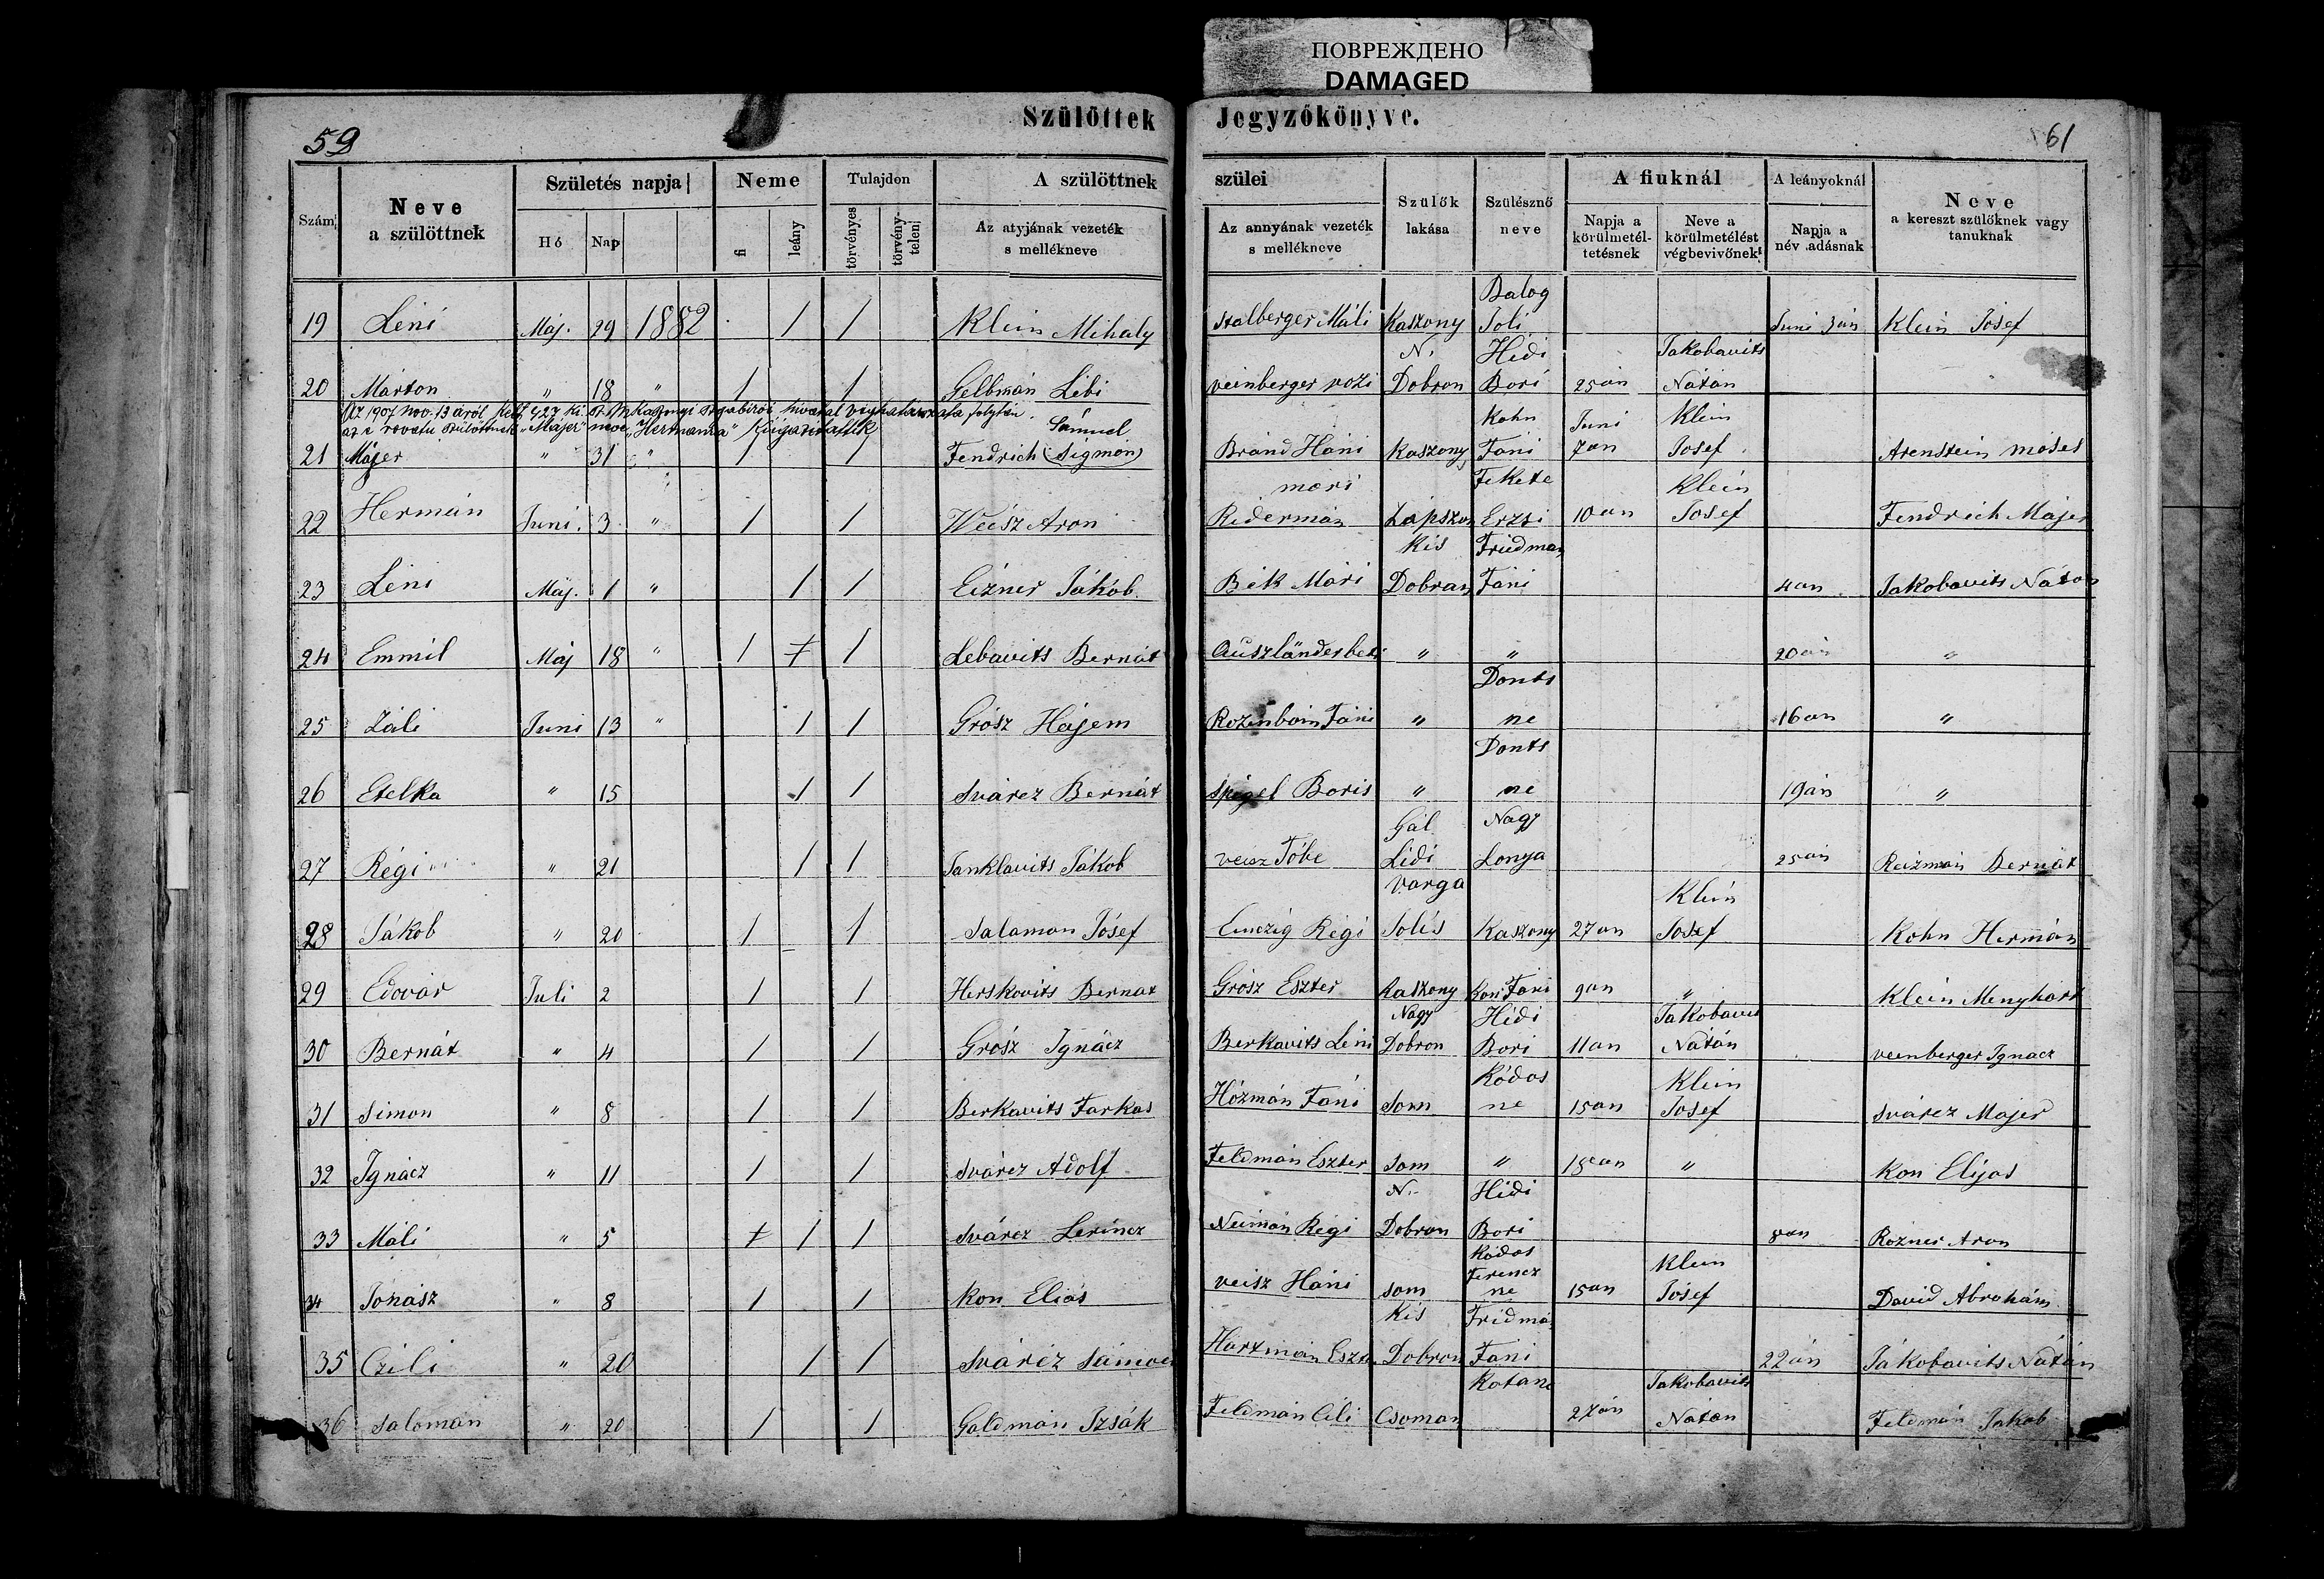 ПОВРЕЖДЕНО
DAMAGED
59
Szülöttek Jegyzőkönyve.
61
Szám
Neve a szülöttnek
Születés napja
Hó
Nap
Neme
fi
leány
Tulajdon
törvényes
törvénytelen
A szülöttnek szülei
Az atyjának vezeték s mellékneve
Az annyának vezeték s mellékneve
Szülők lakása
Szülésznő neve
A fiuknál
Napja a körülmetéltetésnek
Neve a körülmetélést végbevivőnek
A leányoknál
Napja a név adásnak
Neve a kereszt szülőknek vagy tanuknak
19 Léni Máj. 29 1882 / / Klein Mihály Stalberger Máli Kaszony Balog Joli Juni 3án Klein Josef
20 Márton " 18 " / / Gelbmán Lebi veinberger rozi N. Dobron Hidi Bori 25án Jakobavits Nátán
Az 1907 nov. 13 áról kelt
folytán
"Májer" "Hermanra"
21 Májer " 31 " / / Fendrich (Sigmón) Sámuel Bránd Háni Kaszony Kohn Fáni Juni 7án Klein Josef Arenstein Moses
22 Hermán Juni. 3 " / / Weisz Aron Riderman mari Zápszon Fekete Erzsi 10an Klein Josef Fendrich Majer
23 Léni Máj. 1 " / / Eizner Jákob Bék Mári Kis Dobran Fridman Fáni 4an Jakobavits Nátan
24 Emmil Máj 18 " / / Lebavits Bernát Auszländer beti " " 20án "
25 Záli Juni 13 " / / Grósz Hájem Rozinbam Fáni " Donts ne 16an "
26 Etelka " 15 / / Svárcz Bernát Spigel Boris " Donts ne 19án "
27 Régi " 21 / / Janklavits Jákob veisz Tóbe Gál Lidi Nagy Lonya 25án Raizman Bernát
28 Jákob " 20 / / Salamon Jósef Einczig Régi varga Solis Kaszony 27an Klein Josef Kohn Hermán
29 Edovár Juli 2 / / Herskovits Bernat Grósz Eszter Kaszony Kon Fáni 9an " Klein Menyhárt
30 Bernát " 4 / / Grósz Ignácz Berkavits Léni Nagy Dobron Hidi Bori 11an Jakobavits Nátán veinberger Ignacz
31 Simon " 8 / / Berkavits Farkas Hózmán Fáni Som Kódos ne 15an Klein Josef Svárcz Majer
32 Ignácz " 11 / / Svárcz Adolf Feldmán Eszter Som " 18an " Kon Elijas
33 Máli " 5 / / Svárcz Lerincz Neimán Régi N. Dobron Hidi Bori 8an Rozner Aron
34 Jónász " 8 / / Kon Eliás veisz Háni Som Kódos Ferencz ne 15an Klein Jósef David Abrahám
35 Czili " 20 / / Svárcz Sámuel Hartmán Eszti Kis Dobron Fridmá Fáni 22án Jákobavits Nátán
36 Saloman " 20 / / Goldmán Izsák Feldmán Cili Csoman Katane 27án Jakobavits Natan Feldmán Jakob